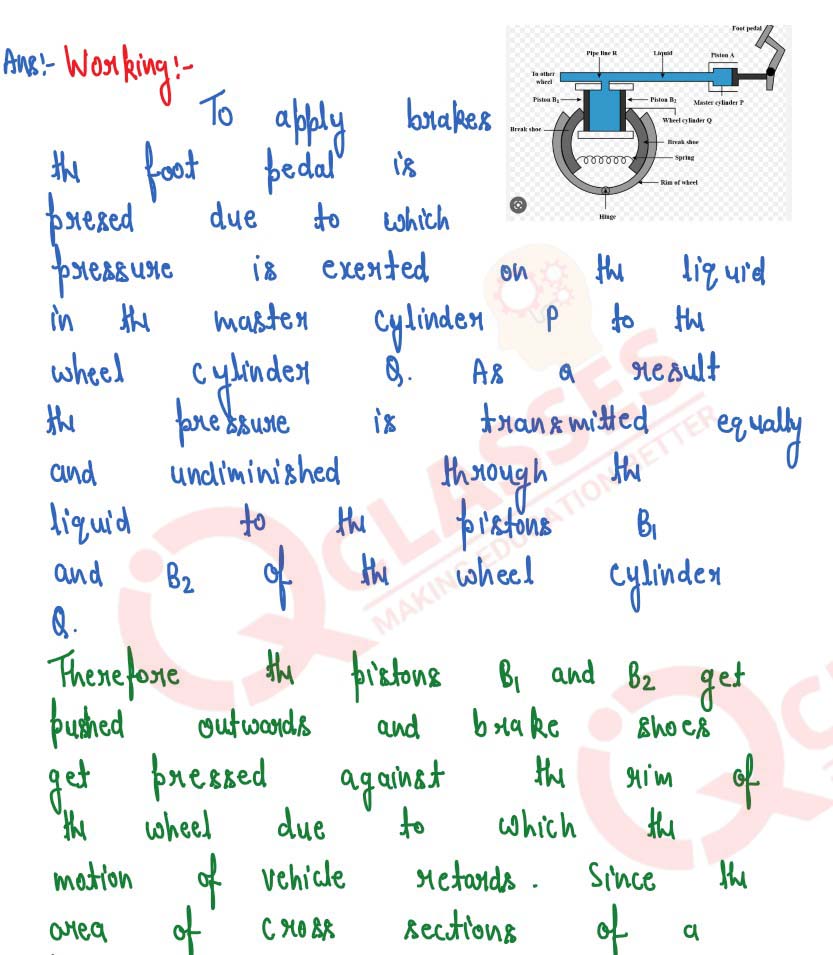 Ans:- Working:-
To apply brakes
the foot pedal is
presed due to which
pressure is exerted on the liquid
in the master cylinder P to the
wheel cylinder Q. As a result
the pressure is transmitted equally
and undiminished through the
liquid to the pistons B1
and B2 of the wheel cylinder
Q.
Therefore the pistons B1 and B2 get
pushed outwards and brake shoes
get pressed against the rim of
the wheel due to which the
motion of vehicle retards. Since the
area of cross sections of a
Foot pedal
Pipe line R Liquid Piston A
To other
wheel
Piston B1 Piston B2 Master cylinder P
Wheel cylinder Q
Break shoe
Break shoe
Spring
Rim of wheel
Hinge
CLASSES
MAKING EDUCATION BETTER